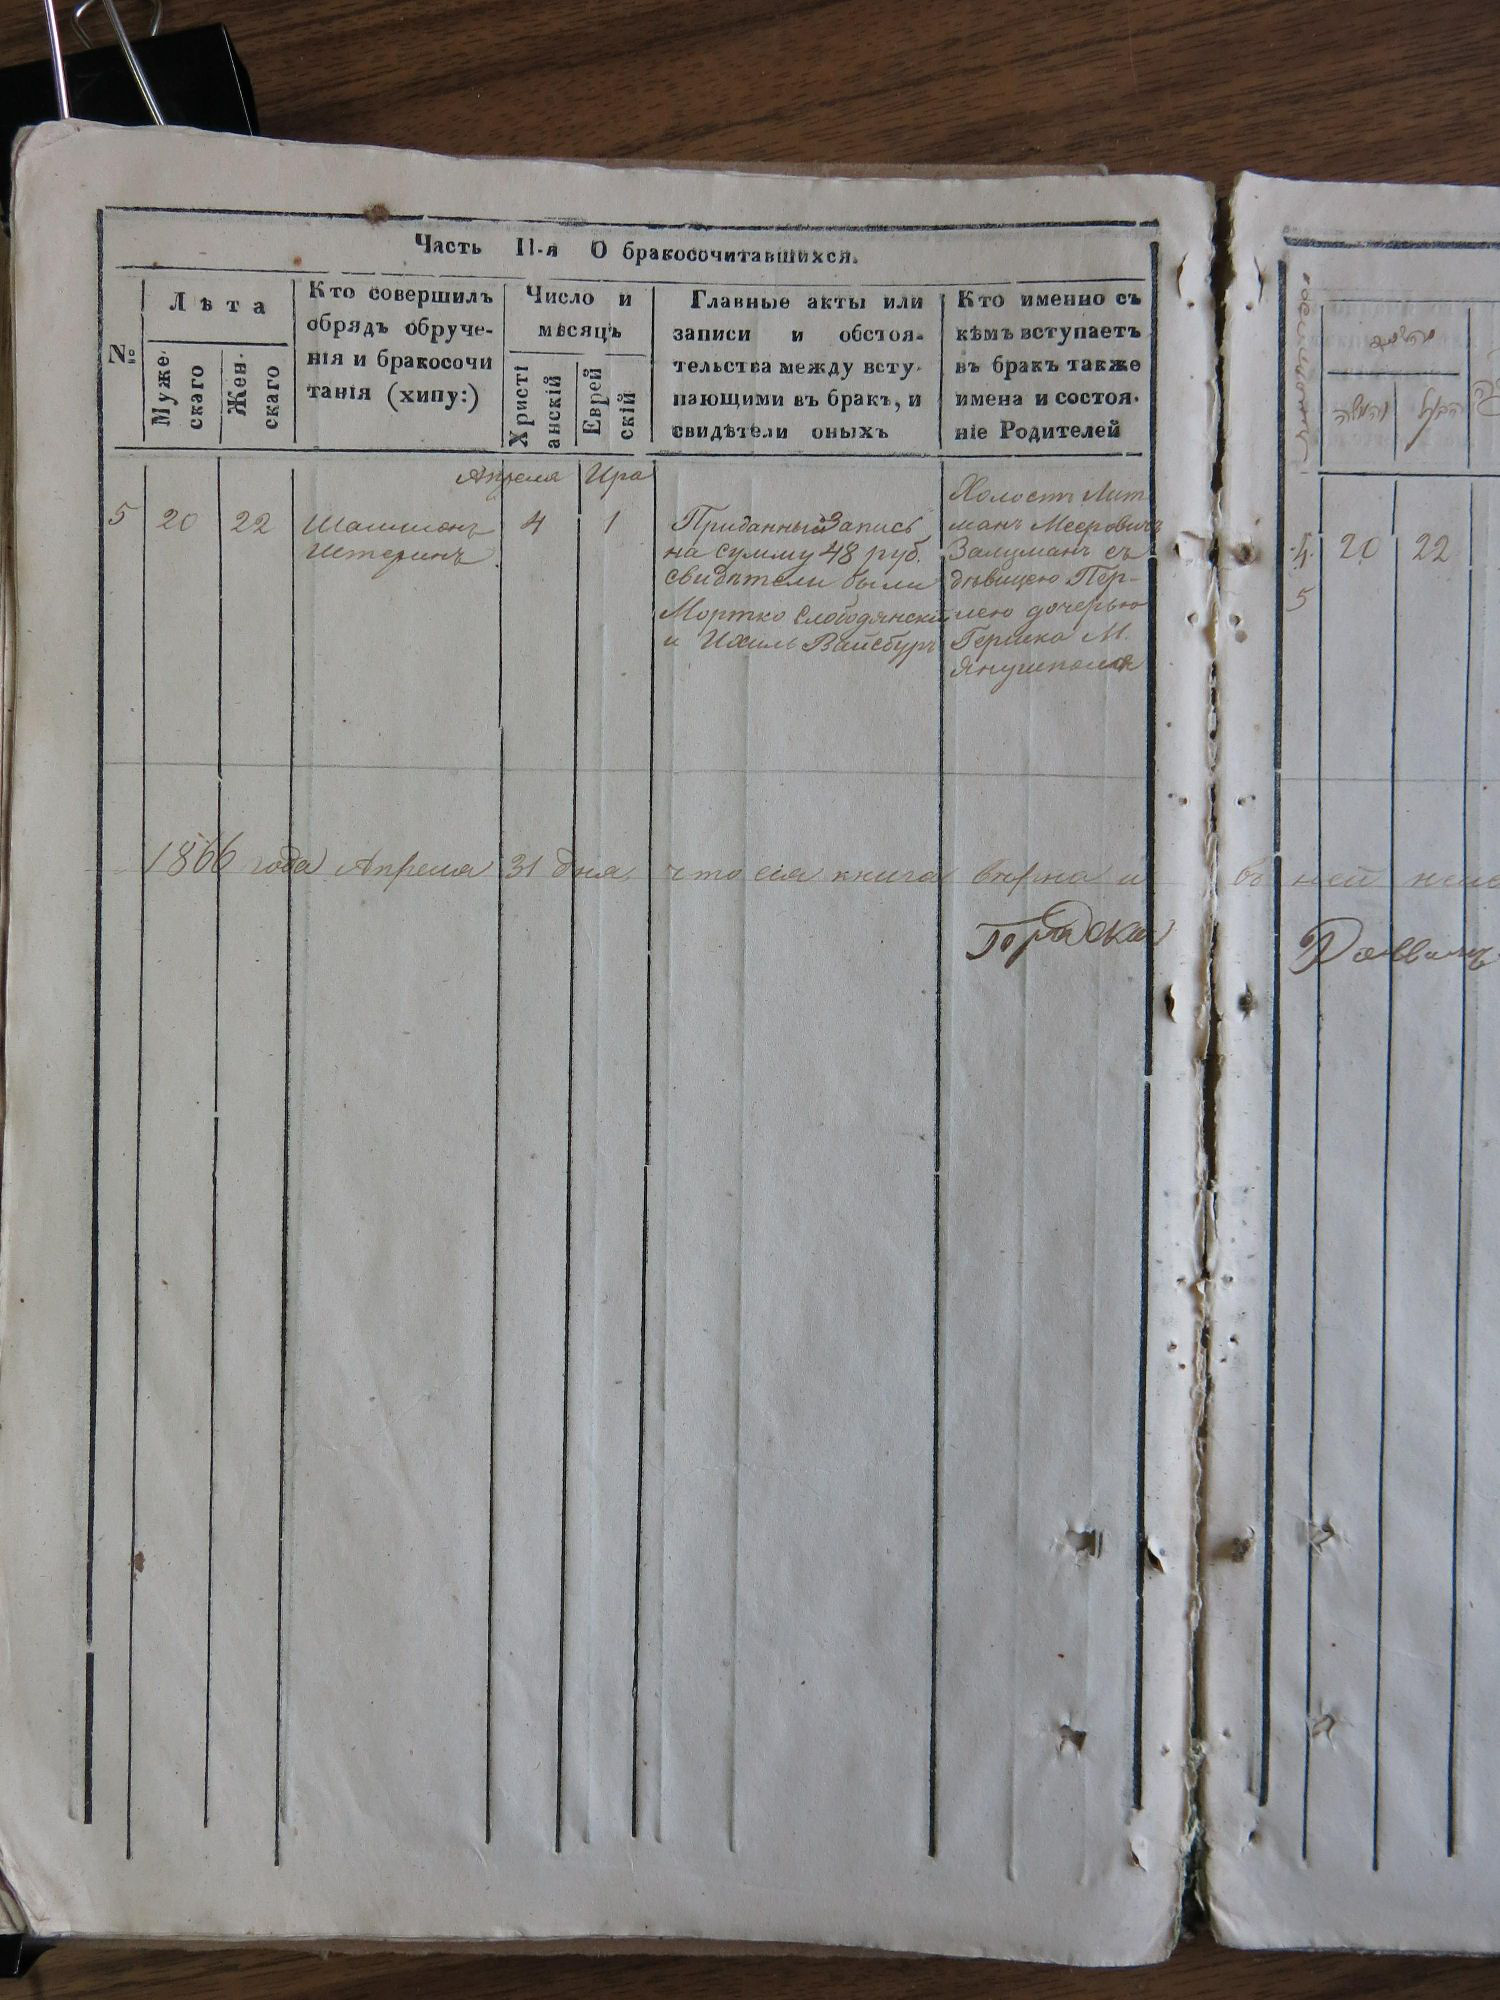 Часть II-я О бракосочитавшихся.
№
Лѣта
Муже-
скаго
Жен-
скаго
Кто совершилъ
обрядъ обруче-
нія и бракосочи
танія (хипу:)
Число и
мѣсяцъ
Христі
анскій
Еврей
скій
Главные акты или
записи и обстоя-
тельства между всту-
пающими въ бракъ, и
свидѣтели оныхъ
Кто именно съ
кѣмъ вступаетъ
въ бракъ также
имена и состоя-
ніе Родителей
Апреля
Ира
5
20
22
4
1
Приданный Запись
на сумму 48 руб.
свидѣтели были
Мортко Слободянскій
и Ихиль Вайсбурт
Холостъ Лит
манъ Мееровичъ
Залцманъ съ
дѣвицею Пер-
лею дочерью
Гершка М.
Янушполя
1866 года Апреля 31 дня что сія книга вѣрна и въ ней
4
20
22
5